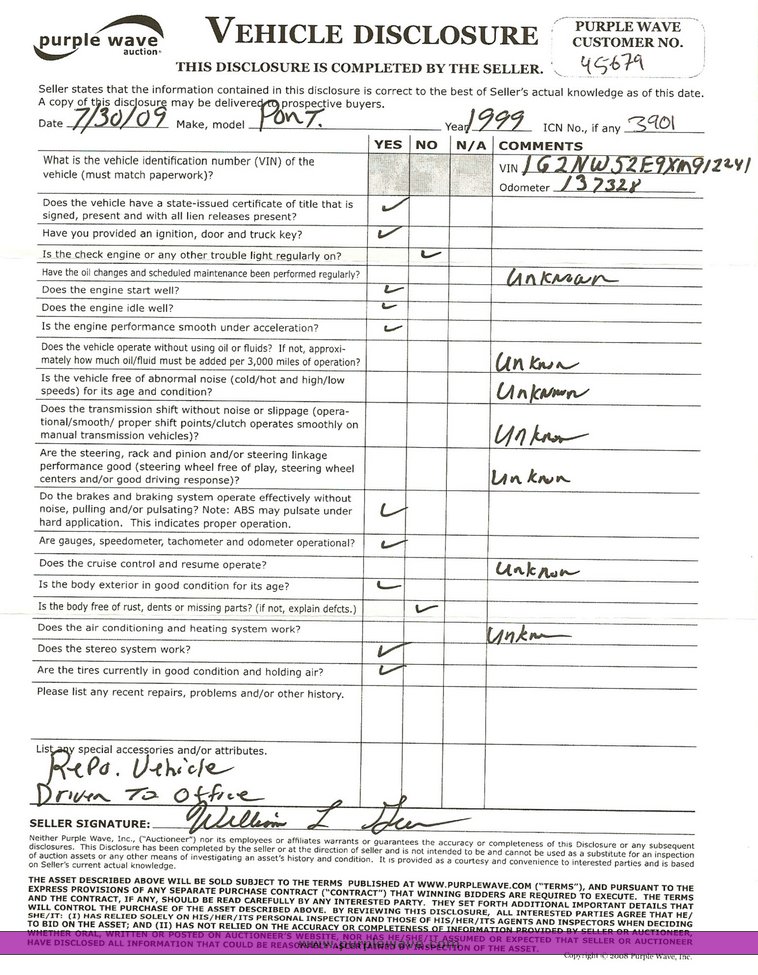 purple wave
auction®
VEHICLE DISCLOSURE
PURPLE WAVE
CUSTOMER NO.
45679
THIS DISCLOSURE IS COMPLETED BY THE SELLER.
Seller states that the information contained in this disclosure is correct to the best of Seller's actual knowledge as of this date.
A copy of this disclosure may be delivered to prospective buyers.
Date 7/30/09 Make, model PONT. Year 1999 ICN No., if any 3901
YES NO N/A COMMENTS
What is the vehicle identification number (VIN) of the VIN 1G2NW52E9XM912241
vehicle (must match paperwork)? Odometer 137328
Does the vehicle have a state-issued certificate of title that is
signed, present and with all lien releases present?
Have you provided an ignition, door and truck key?
Is the check engine or any other trouble light regularly on?
Have the oil changes and scheduled maintenance been performed regularly? Unknown
Does the engine start well?
Does the engine idle well?
Is the engine performance smooth under acceleration?
Does the vehicle operate without using oil or fluids? If not, approxi-
mately how much oil/fluid must be added per 3,000 miles of operation? Unknown
Is the vehicle free of abnormal noise (cold/hot and high/low
speeds) for its age and condition? Unknown
Does the transmission shift without noise or slippage (opera-
tional/smooth/ proper shift points/clutch operates smoothly on
manual transmission vehicles)? Unknown
Are the steering, rack and pinion and/or steering linkage
performance good (steering wheel free of play, steering wheel
centers and/or good driving response)? Unknown
Do the brakes and braking system operate effectively without
noise, pulling and/or pulsating? Note: ABS may pulsate under
hard application. This indicates proper operation.
Are gauges, speedometer, tachometer and odometer operational?
Does the cruise control and resume operate? Unknown
Is the body exterior in good condition for its age?
Is the body free of rust, dents or missing parts? (if not, explain defcts.)
Does the air conditioning and heating system work? Unkn
Does the stereo system work?
Are the tires currently in good condition and holding air?
Please list any recent repairs, problems and/or other history.
List any special accessories and/or attributes.
Repo. Vehicle
Driven To Office
SELLER SIGNATURE: William L
Neither Purple Wave, Inc., ("Auctioneer") nor its employees or affiliates warrants or guarantees the accuracy or completeness of this Disclosure or any subsequent
disclosures. This Disclosure has been completed by the seller or at the direction of seller and is not intended to be and cannot be used as a substitute for an inspection
of auction assets or any other means of investigating an asset's history and condition. It is provided as a courtesy and convenience to interested parties and is based
on Seller's current actual knowledge.
THE ASSET DESCRIBED ABOVE WILL BE SOLD SUBJECT TO THE TERMS PUBLISHED AT WWW.PURPLEWAVE.COM ("TERMS"), AND PURSUANT TO THE
EXPRESS PROVISIONS OF ANY SEPARATE PURCHASE CONTRACT ("CONTRACT") THAT WINNING BIDDERS ARE REQUIRED TO EXECUTE. THE TERMS
AND THE CONTRACT, IF ANY, SHOULD BE READ CAREFULLY BY ANY INTERESTED PARTY. THEY SET FORTH ADDITIONAL IMPORTANT DETAILS THAT
WILL CONTROL THE PURCHASE OF THE ASSET DESCRIBED ABOVE. BY REVIEWING THIS DISCLOSURE, ALL INTERESTED PARTIES AGREE THAT HE/
SHE/IT: (I) HAS RELIED SOLELY ON HIS/HER/ITS PERSONAL INSPECTION AND THOSE OF HIS/HER/ITS AGENTS AND INSPECTORS WHEN DECIDING
TO BID ON THE ASSET; AND (II) HAS NOT RELIED ON THE ACCURACY OR COMPLETENESS OF INFORMATION PROVIDED BY SELLER OR AUCTIONEER,
WHETHER ORAL, WRITTEN OR POSTED ON AUCTIONEER'S WEBSITE, NOR HAS HE/SHE/IT ASSUMED OR EXPECTED THAT SELLER OR AUCTIONEER
HAVE DISCLOSED ALL INFORMATION THAT COULD BE REASONABLY ASCERTAINED BY INSPECTION OF THE ASSET.
www.purplewave.com
Copyright © 2008 Purple Wave, Inc.